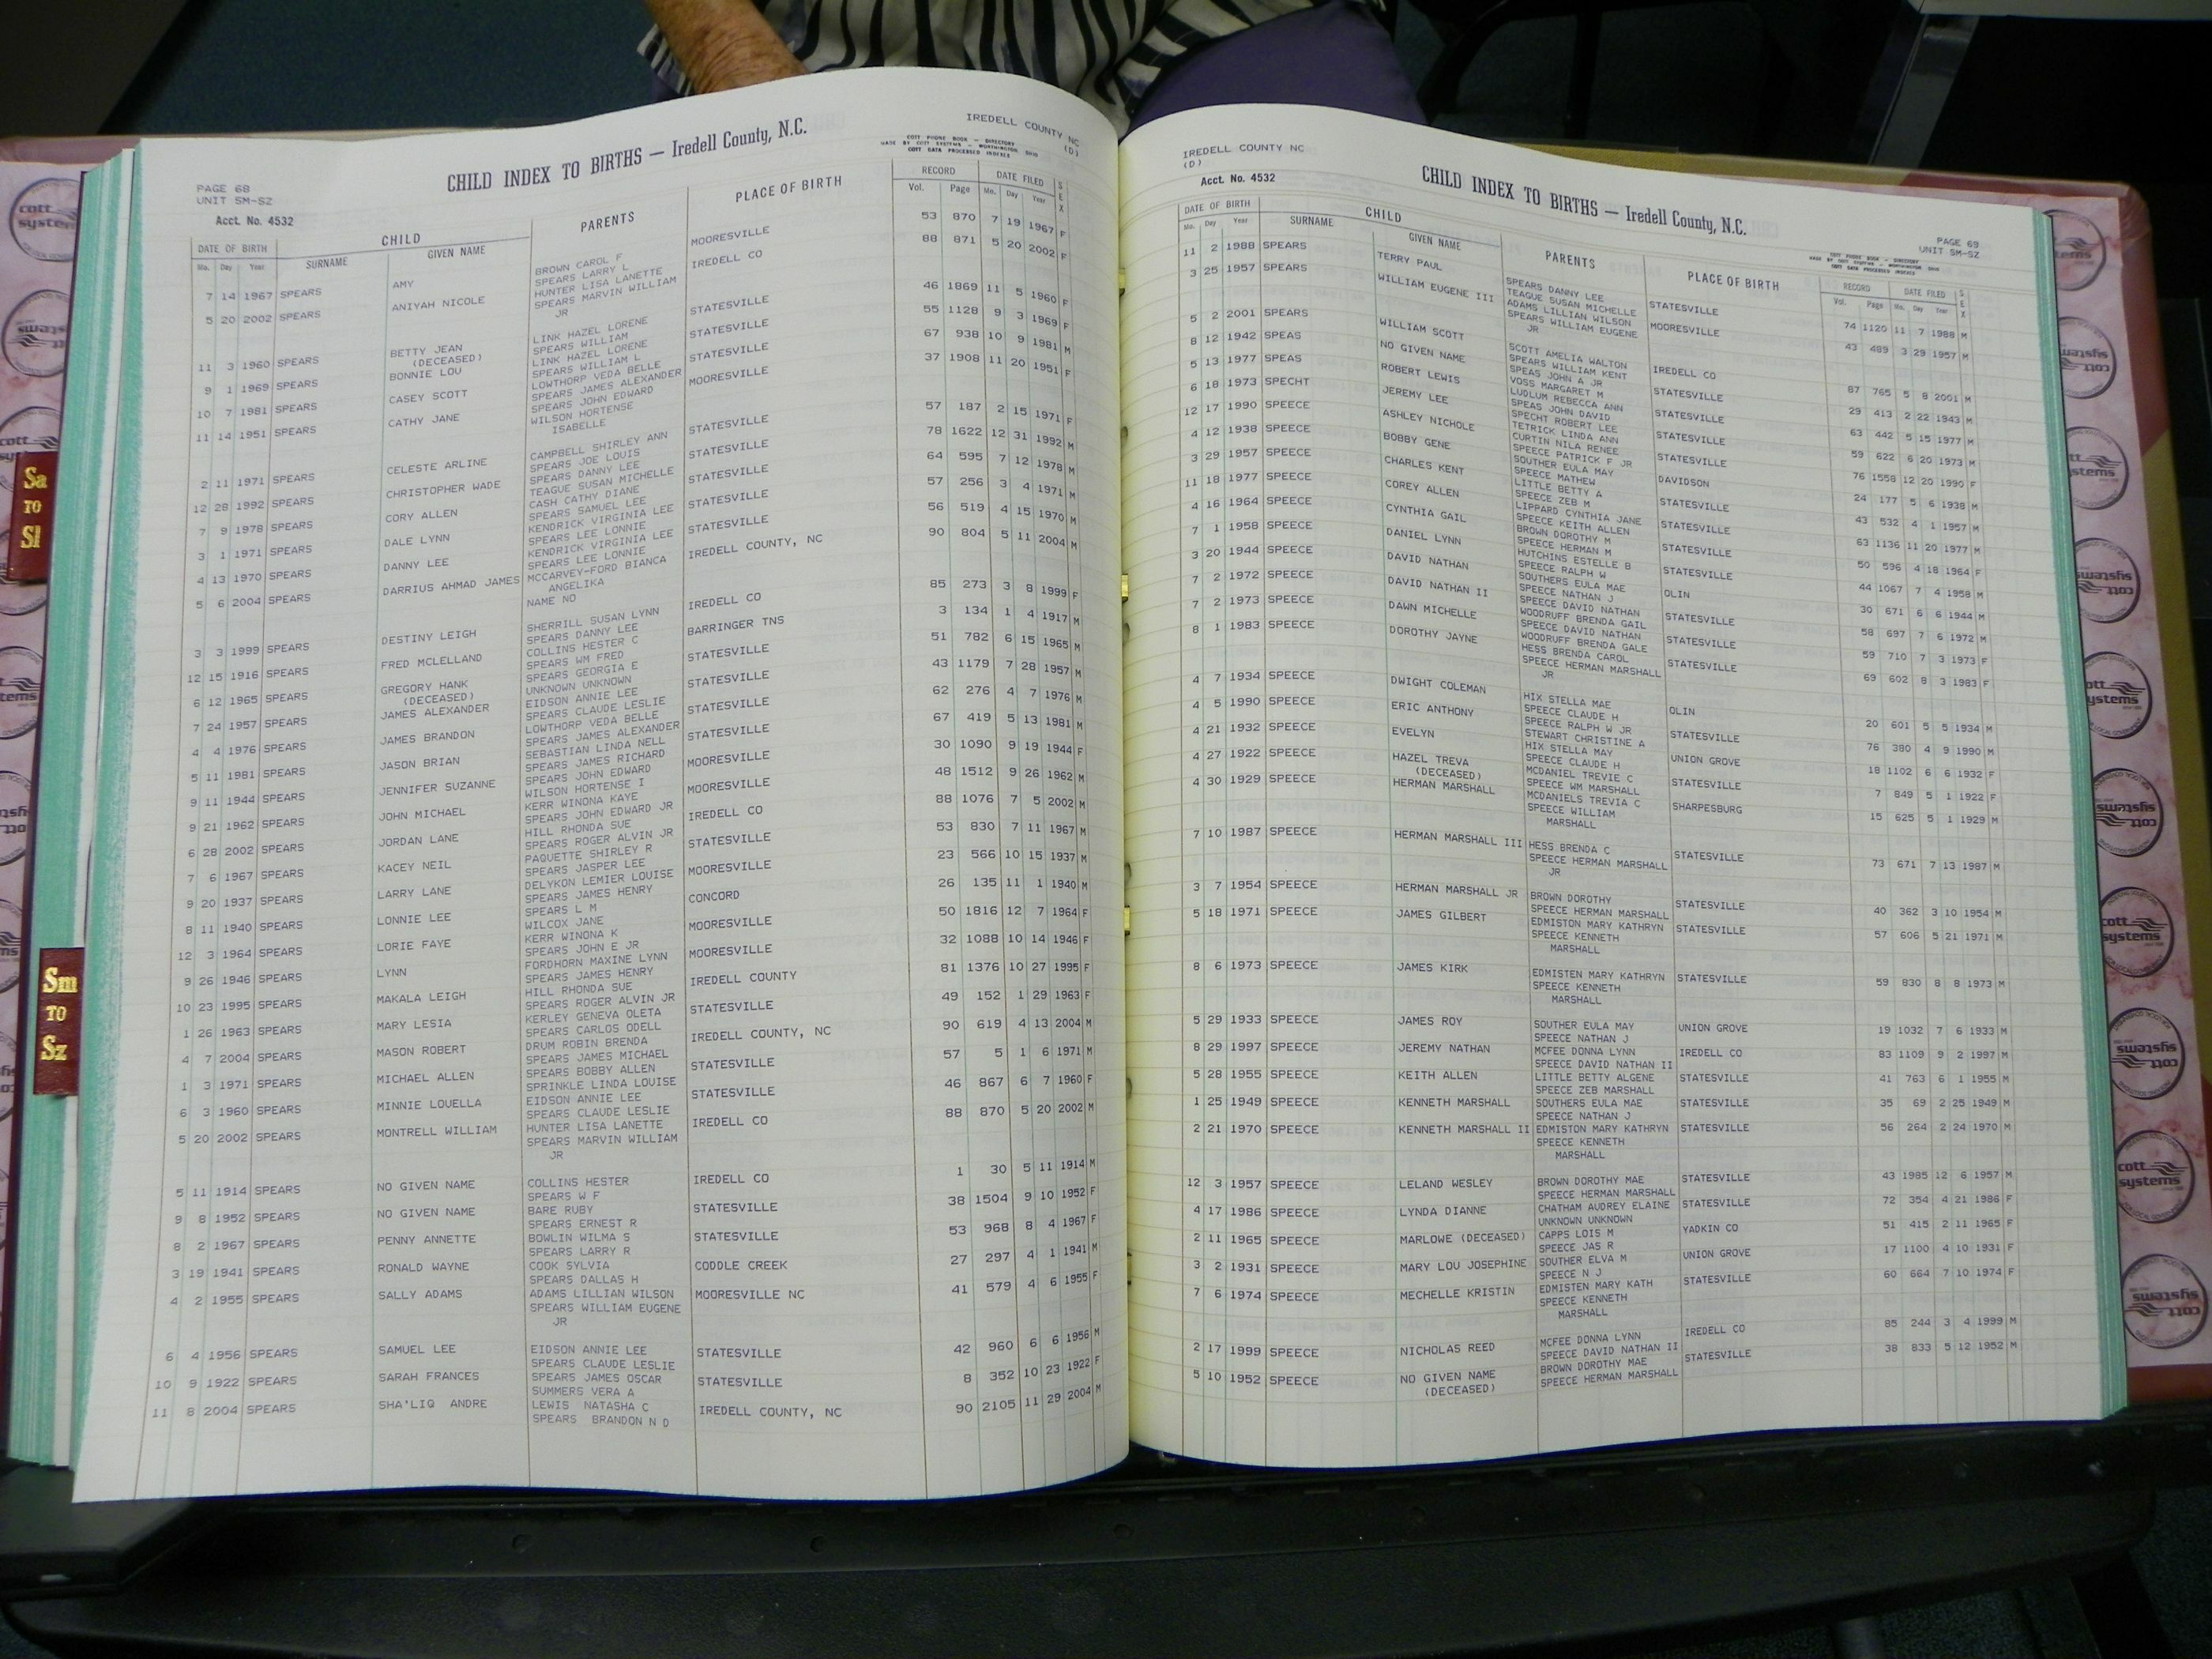 IREDELL COUNTY NC
(D)
CHILD INDEX TO BIRTHS — Iredell County, N.C.
COTT PHONE BOOK — DIRECTORY
MADE BY COTT SYSTEMS — WORTHINGTON, OHIO
COTT DATA PROCESSED INDEXES
PAGE 68
UNIT SM-SZ
Acct. No. 4532
DATE OF BIRTH CHILD PARENTS PLACE OF BIRTH RECORD DATE FILED SEX
Mo. Day Year SURNAME GIVEN NAME Vol. Page Mo. Day Year
7 14 1967 SPEARS AMY BROWN CAROL F MOORESVILLE 53 870 7 19 1967 F
SPEARS LARRY L
5 20 2002 SPEARS ANIYAH NICOLE HUNTER LISA LANETTE IREDELL CO 88 871 5 20 2002 F
SPEARS MARVIN WILLIAM
JR
11 3 1960 SPEARS BETTY JEAN LINK HAZEL LORENE STATESVILLE 46 1869 11 5 1960 F
(DECEASED) SPEARS WILLIAM
9 1 1969 SPEARS BONNIE LOU LINK HAZEL LORENE STATESVILLE 55 1128 9 3 1969 F
SPEARS WILLIAM L
10 7 1981 SPEARS CASEY SCOTT LOWTHORP VEDA BELLE STATESVILLE 67 938 10 9 1981 M
SPEARS JAMES ALEXANDER
11 14 1951 SPEARS CATHY JANE SPEARS JOHN EDWARD MOORESVILLE 37 1908 11 20 1951 F
WILSON HORTENSE
ISABELLE
2 11 1971 SPEARS CELESTE ARLINE CAMPBELL SHIRLEY ANN STATESVILLE 57 187 2 15 1971 F
SPEARS JOE LOUIS
12 28 1992 SPEARS CHRISTOPHER WADE SPEARS DANNY LEE STATESVILLE 78 1622 12 31 1992 M
TEAGUE SUSAN MICHELLE
7 9 1978 SPEARS CORY ALLEN CASH CATHY DIANE STATESVILLE 64 595 7 12 1978 M
SPEARS SAMUEL LEE
3 1 1971 SPEARS DALE LYNN KENDRICK VIRGINIA LEE STATESVILLE 57 256 3 4 1971 M
SPEARS LEE LONNIE
4 13 1970 SPEARS DANNY LEE KENDRICK VIRGINIA LEE STATESVILLE 56 519 4 15 1970 M
SPEARS LEE LONNIE
5 6 2004 SPEARS DARRIUS AHMAD JAMES MCCARVEY-FORD BIANCA IREDELL COUNTY, NC 90 804 5 11 2004 M
ANGELIKA
NAME NO
3 3 1999 SPEARS DESTINY LEIGH SHERRILL SUSAN LYNN IREDELL CO 85 273 3 8 1999 F
SPEARS DANNY LEE
12 15 1916 SPEARS FRED MCLELLAND COLLINS HESTER C BARRINGER TNS 3 134 1 4 1917 M
SPEARS WM FRED
6 12 1965 SPEARS GREGORY HANK SPEARS GEORGIA E STATESVILLE 51 782 6 15 1965 M
(DECEASED) UNKNOWN UNKNOWN
7 24 1957 SPEARS JAMES ALEXANDER EIDSON ANNIE LEE STATESVILLE 43 1179 7 28 1957 M
SPEARS CLAUDE LESLIE
4 4 1976 SPEARS JAMES BRANDON LOWTHORP VEDA BELLE STATESVILLE 62 276 4 7 1976 M
SPEARS JAMES ALEXANDER
5 11 1981 SPEARS JASON BRIAN SEBASTIAN LINDA NELL STATESVILLE 67 419 5 13 1981 M
SPEARS JAMES RICHARD
9 11 1944 SPEARS JENNIFER SUZANNE SPEARS JOHN EDWARD MOORESVILLE 30 1090 9 19 1944 F
WILSON HORTENSE I
9 21 1962 SPEARS JOHN MICHAEL KERR WINONA KAYE MOORESVILLE 48 1512 9 26 1962 M
SPEARS JOHN EDWARD JR
6 28 2002 SPEARS JORDAN LANE HILL RHONDA SUE IREDELL CO 88 1076 7 5 2002 M
SPEARS ROGER ALVIN JR
7 6 1967 SPEARS KACEY NEIL PAQUETTE SHIRLEY R STATESVILLE 53 830 7 11 1967 M
SPEARS JASPER LEE
9 20 1937 SPEARS LARRY LANE DELYKON LEMIER LOUISE MOORESVILLE 23 566 10 15 1937 M
SPEARS JAMES HENRY
8 11 1940 SPEARS LONNIE LEE SPEARS L M CONCORD 26 135 11 1 1940 M
WILCOX JANE
12 3 1964 SPEARS LORIE FAYE KERR WINONA K MOORESVILLE 50 1816 12 7 1964 F
SPEARS JOHN E JR
9 26 1946 SPEARS LYNN FORDHORN MAXINE LYNN MOORESVILLE 32 1088 10 14 1946 F
SPEARS JAMES HENRY
10 23 1995 SPEARS MAKALA LEIGH HILL RHONDA SUE IREDELL COUNTY 81 1376 10 27 1995 F
SPEARS ROGER ALVIN JR
1 26 1963 SPEARS MARY LESIA KERLEY GENEVA OLETA STATESVILLE 49 152 1 29 1963 F
SPEARS CARLOS ODELL
4 7 2004 SPEARS MASON ROBERT DRUM ROBIN BRENDA IREDELL COUNTY, NC 90 619 4 13 2004 M
SPEARS JAMES MICHAEL
1 3 1971 SPEARS MICHAEL ALLEN SPEARS BOBBY ALLEN STATESVILLE 57 5 1 6 1971 M
SPRINKLE LINDA LOUISE
6 3 1960 SPEARS MINNIE LOUELLA EIDSON ANNIE LEE STATESVILLE 46 867 6 7 1960 F
SPEARS CLAUDE LESLIE
5 20 2002 SPEARS MONTRELL WILLIAM HUNTER LISA LANETTE IREDELL CO 88 870 5 20 2002 M
SPEARS MARVIN WILLIAM
JR
5 11 1914 SPEARS NO GIVEN NAME COLLINS HESTER IREDELL CO 1 30 5 11 1914 M
SPEARS W F
9 8 1952 SPEARS NO GIVEN NAME BARE RUBY STATESVILLE 38 1504 9 10 1952 F
SPEARS ERNEST R
8 2 1967 SPEARS PENNY ANNETTE BOWLIN WILMA S STATESVILLE 53 968 8 4 1967 F
SPEARS LARRY R
3 19 1941 SPEARS RONALD WAYNE COOK SYLVIA CODDLE CREEK 27 297 4 1 1941 M
SPEARS DALLAS H
4 2 1955 SPEARS SALLY ADAMS ADAMS LILLIAN WILSON MOORESVILLE NC 41 579 4 6 1955 F
SPEARS WILLIAM EUGENE
JR
6 4 1956 SPEARS SAMUEL LEE EIDSON ANNIE LEE STATESVILLE 42 960 6 6 1956 M
SPEARS CLAUDE LESLIE
10 9 1922 SPEARS SARAH FRANCES SPEARS JAMES OSCAR STATESVILLE 8 352 10 23 1922 F
SUMMERS VERA A
11 8 2004 SPEARS SHA'LIQ ANDRE LEWIS NATASHA C IREDELL COUNTY, NC 90 2105 11 29 2004 M
SPEARS BRANDON N D
IREDELL COUNTY NC
(D)
Acct. No. 4532
CHILD INDEX TO BIRTHS — Iredell County, N.C.
PAGE 69
UNIT SM-SZ
COTT PHONE BOOK — DIRECTORY
MADE BY COTT SYSTEMS — WORTHINGTON, OHIO
COTT DATA PROCESSED INDEXES
DATE OF BIRTH CHILD PARENTS PLACE OF BIRTH RECORD DATE FILED SEX
Mo. Day Year SURNAME GIVEN NAME Vol. Page Mo. Day Year
11 2 1988 SPEARS TERRY PAUL SPEARS DANNY LEE STATESVILLE 74 1120 11 7 1988 M
TEAGUE SUSAN MICHELLE
3 25 1957 SPEARS WILLIAM EUGENE III ADAMS LILLIAN WILSON MOORESVILLE 43 489 3 29 1957 M
SPEARS WILLIAM EUGENE
JR
5 2 2001 SPEARS WILLIAM SCOTT SCOTT AMELIA WALTON IREDELL CO 87 765 5 8 2001 M
SPEARS WILLIAM KENT
8 12 1942 SPEAS NO GIVEN NAME SPEAS JOHN A JR STATESVILLE 29 413 2 22 1943 M
VOSS MARGARET M
5 13 1977 SPEAS ROBERT LEWIS LUDLUM REBECCA ANN STATESVILLE 63 442 5 15 1977 M
SPEAS JOHN DAVID
6 18 1973 SPECHT JEREMY LEE SPECHT ROBERT LEE STATESVILLE 59 622 6 20 1973 M
TETRICK LINDA ANN
12 17 1990 SPEECE ASHLEY NICHOLE CURTIN NILA RENEE STATESVILLE 76 1558 12 20 1990 F
SPEECE PATRICK F JR
4 12 1938 SPEECE BOBBY GENE SOUTHER EULA MAY DAVIDSON 24 177 5 6 1938 M
SPEECE MATHEW
3 29 1957 SPEECE CHARLES KENT LITTLE BETTY A STATESVILLE 43 532 4 1 1957 M
SPEECE ZEB M
11 18 1977 SPEECE COREY ALLEN LIPPARD CYNTHIA JANE STATESVILLE 63 1136 11 20 1977 M
SPEECE KEITH ALLEN
4 16 1964 SPEECE CYNTHIA GAIL BROWN DOROTHY M STATESVILLE 50 596 4 18 1964 F
SPEECE HERMAN M
7 1 1958 SPEECE DANIEL LYNN HUTCHINS ESTELLE B STATESVILLE 44 1067 7 4 1958 M
SPEECE RALPH W
3 20 1944 SPEECE DAVID NATHAN SOUTHERS EULA MAE OLIN 30 671 6 6 1944 M
SPEECE NATHAN J
7 2 1972 SPEECE DAVID NATHAN II SPEECE DAVID NATHAN STATESVILLE 58 697 7 6 1972 M
WOODRUFF BRENDA GAIL
7 2 1973 SPEECE DAWN MICHELLE SPEECE DAVID NATHAN STATESVILLE 59 710 7 3 1973 F
WOODRUFF BRENDA GALE
8 1 1983 SPEECE DOROTHY JAYNE HESS BRENDA CAROL STATESVILLE 69 602 8 3 1983 F
SPEECE HERMAN MARSHALL
JR
4 7 1934 SPEECE DWIGHT COLEMAN HIX STELLA MAE OLIN 20 601 5 5 1934 M
SPEECE CLAUDE H
4 5 1990 SPEECE ERIC ANTHONY SPEECE RALPH W JR STATESVILLE 76 380 4 9 1990 M
STEWART CHRISTINE A
4 21 1932 SPEECE EVELYN HIX STELLA MAY UNION GROVE 18 1102 6 6 1932 F
SPEECE CLAUDE H
4 27 1922 SPEECE HAZEL TREVA MCDANIEL TREVIE C STATESVILLE 7 849 5 1 1922 F
(DECEASED) SPEECE WM MARSHALL
4 30 1929 SPEECE HERMAN MARSHALL MCDANIELS TREVIA C SHARPESBURG 15 625 5 1 1929 M
SPEECE WILLIAM
MARSHALL
7 10 1987 SPEECE HERMAN MARSHALL III HESS BRENDA C STATESVILLE 73 671 7 13 1987 M
SPEECE HERMAN MARSHALL
JR
3 7 1954 SPEECE HERMAN MARSHALL JR BROWN DOROTHY STATESVILLE 40 362 3 10 1954 M
SPEECE HERMAN MARSHALL
5 18 1971 SPEECE JAMES GILBERT EDMISTON MARY KATHRYN STATESVILLE 57 606 5 21 1971 M
SPEECE KENNETH
MARSHALL
8 6 1973 SPEECE JAMES KIRK EDMISTEN MARY KATHRYN STATESVILLE 59 830 8 8 1973 M
SPEECE KENNETH
MARSHALL
5 29 1933 SPEECE JAMES ROY SOUTHER EULA MAY UNION GROVE 19 1032 7 6 1933 M
SPEECE NATHAN J
8 29 1997 SPEECE JEREMY NATHAN MCFEE DONNA LYNN IREDELL CO 83 1109 9 2 1997 M
SPEECE DAVID NATHAN II
5 28 1955 SPEECE KEITH ALLEN LITTLE BETTY ALGENE STATESVILLE 41 763 6 1 1955 M
SPEECE ZEB MARSHALL
1 25 1949 SPEECE KENNETH MARSHALL SOUTHERS EULA MAE STATESVILLE 35 69 2 25 1949 M
SPEECE NATHAN J
2 21 1970 SPEECE KENNETH MARSHALL II EDMISTON MARY KATHRYN STATESVILLE 56 264 2 24 1970 M
SPEECE KENNETH
MARSHALL
12 3 1957 SPEECE LELAND WESLEY BROWN DOROTHY MAE STATESVILLE 43 1985 12 6 1957 M
SPEECE HERMAN MARSHALL
4 17 1986 SPEECE LYNDA DIANNE CHATHAM AUDREY ELAINE STATESVILLE 72 354 4 21 1986 F
UNKNOWN UNKNOWN
2 11 1965 SPEECE MARLOWE (DECEASED) CAPPS LOIS M YADKIN CO 51 415 2 11 1965 F
SPEECE JAS R
3 2 1931 SPEECE MARY LOU JOSEPHINE SOUTHER ELVA M UNION GROVE 17 1100 4 10 1931 F
SPEECE N J
7 6 1974 SPEECE MECHELLE KRISTIN EDMISTEN MARY KATH STATESVILLE 60 664 7 10 1974 F
SPEECE KENNETH
MARSHALL
2 17 1999 SPEECE NICHOLAS REED MCFEE DONNA LYNN IREDELL CO 85 244 3 4 1999 M
SPEECE DAVID NATHAN II
5 10 1952 SPEECE NO GIVEN NAME BROWN DOROTHY MAE STATESVILLE 38 833 5 12 1952 M
(DECEASED) SPEECE HERMAN MARSHALL
Sa
TO
Sl
Sm
TO
Sz
cott
systems